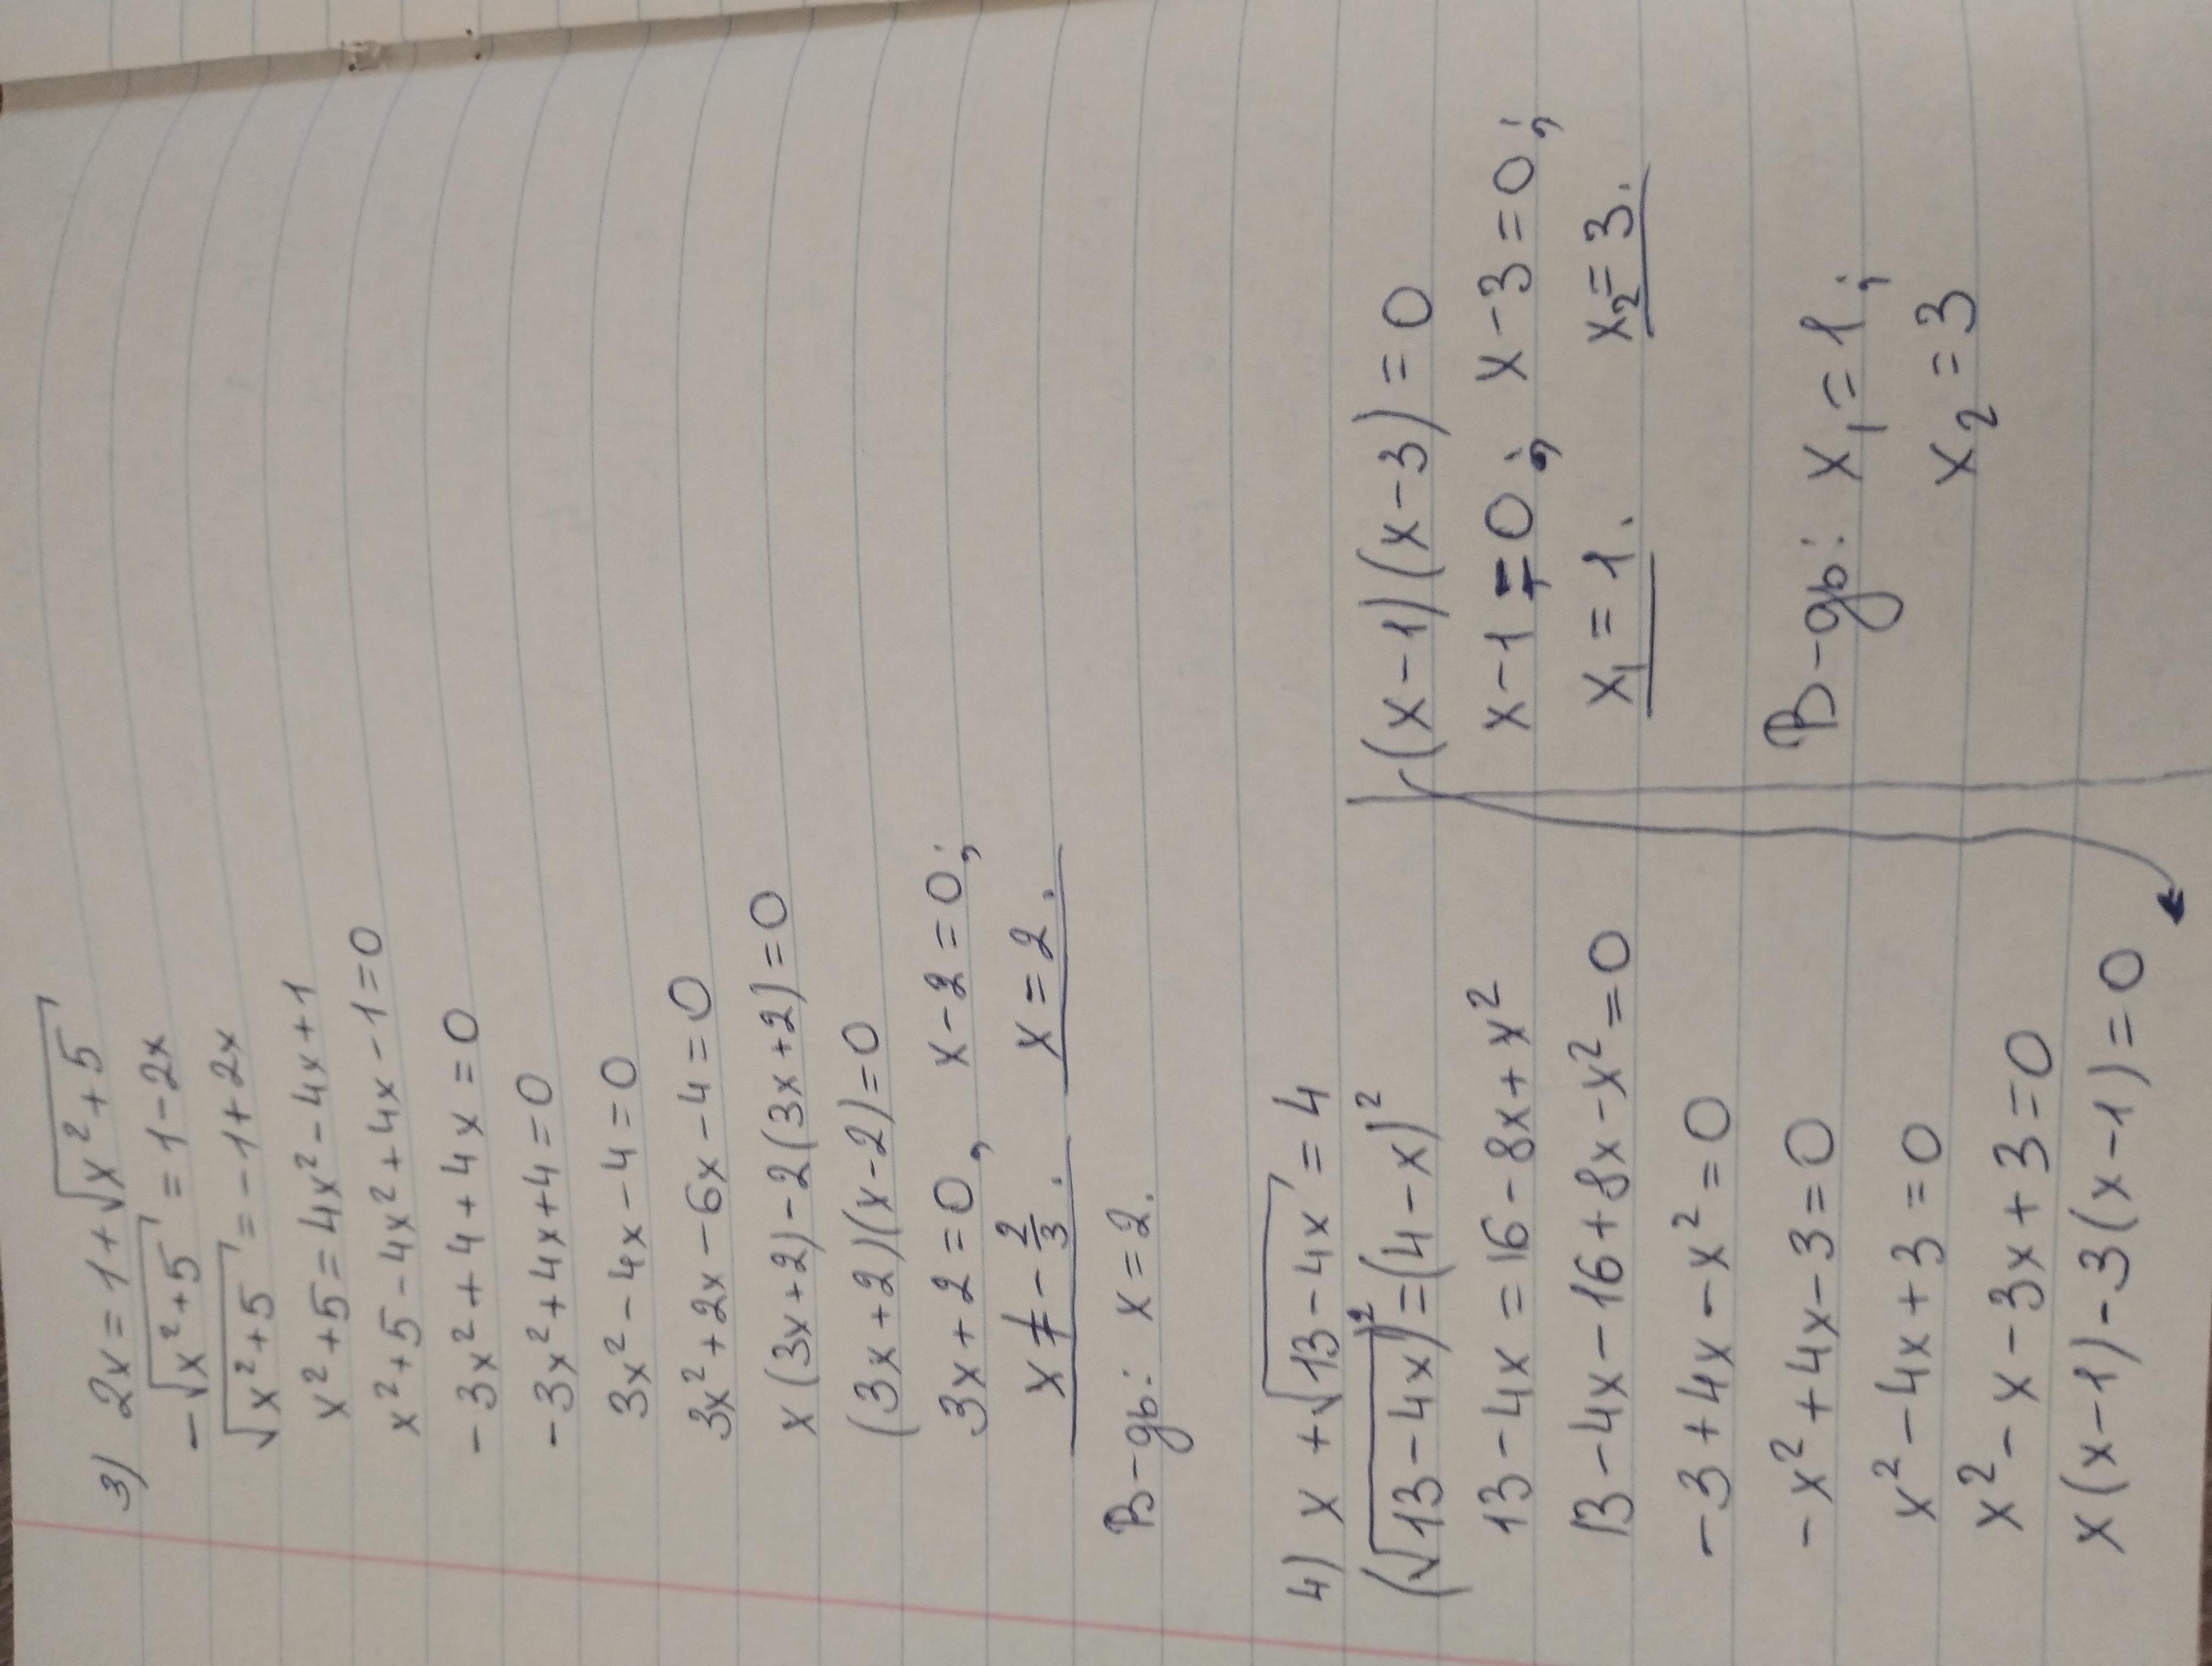 3) 2x = 1 + √x² + 5
-√x² + 5 = 1 - 2x
√x² + 5 = -1 + 2x
x² + 5 = 4x² - 4x + 1
x² + 5 - 4x² + 4x - 1 = 0
-3x² + 4 + 4x = 0
-3x² + 4x + 4 = 0
3x² - 4x - 4 = 0
3x² + 2x - 6x - 4 = 0
x(3x + 2) - 2(3x + 2) = 0
(3x + 2)(x - 2) = 0
3x + 2 = 0, x - 2 = 0;
x ≠ -2/3. x = 2.
В-дь: x = 2.
4) x + √13 - 4x = 4
(√13 - 4x)² = (4 - x)²
13 - 4x = 16 - 8x + x²
13 - 4x - 16 + 8x - x² = 0
-3 + 4x - x² = 0
-x² + 4x - 3 = 0
x² - 4x + 3 = 0
x² - x - 3x + 3 = 0
x(x - 1) - 3(x - 1) = 0
(x - 1)(x - 3) = 0
x - 1 = 0; x - 3 = 0;
x₁ = 1. x₂ = 3.
В-дь: x₁ = 1;
x₂ = 3